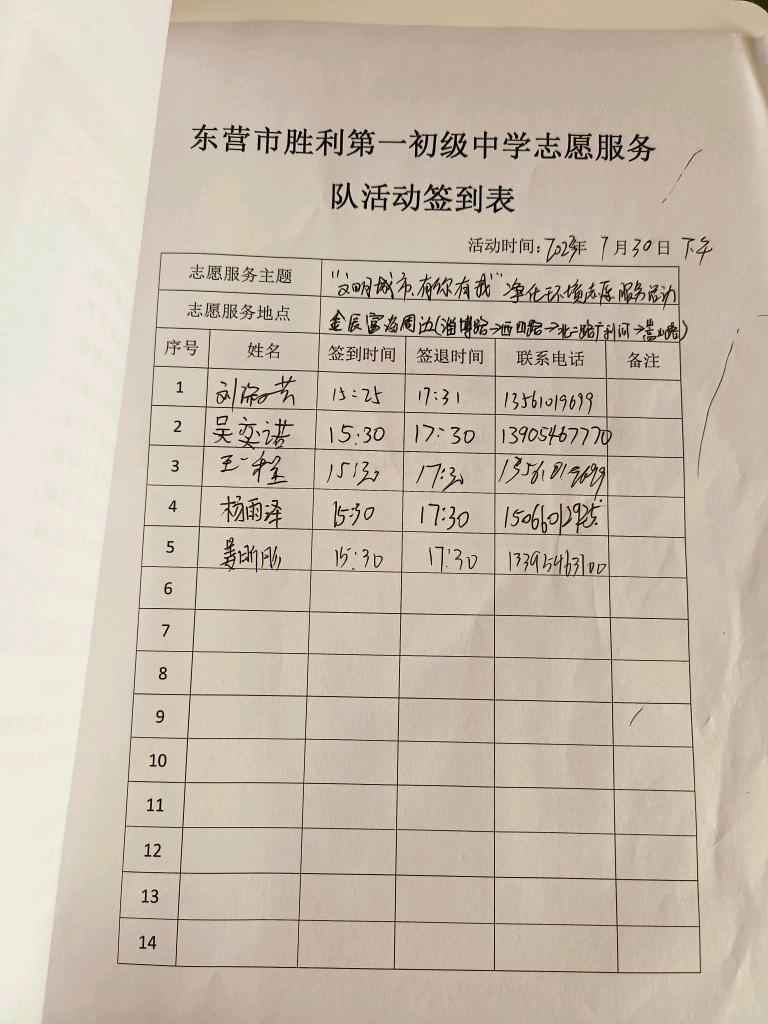 东营市胜利第一初级中学志愿服务
队活动签到表
活动时间:2023年 7月30日 下午
志愿服务主题 "文明城市,有你有我"净化环境志愿服务活动
志愿服务地点 金辰富海周边(淄博路→西四路→北二路广利河→嵩山路)
序号 姓名 签到时间 签退时间 联系电话 备注
1 刘 15:25 17:31 13561019699
2 吴奕诺 15:30 17:30 13905467770
3 王一程 15:30 17:30
4 杨雨泽 15:30 17:30
5 姜昕彤 15:30 17:30 13395463100
6
7
8
9
10
11
12
13
14